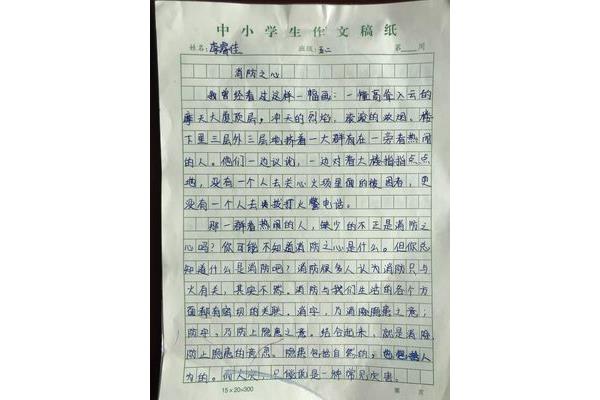 中小学生作文稿纸
姓名: 李睿佳 班级: 五二 第 周
消防之心
我曾经看过这样一幅画:一幢高耸入云的
摩天大厦顶层,冲天的烈焰,滚滚的浓烟,楼
下里三层外三层地挤着一大群看在一旁看热闹
的人。他们一边议论,一边对着大楼指指点点
地,没有一个人去关心火场里面的被困者,更
没有一个人去拨打火警电话。
那一群看热闹的人,缺少的不正是消防之
心吗?你可能不知道消防之心是什么。但你总
知道什么是消防吧?消防很多人认为消防只与
火有关,其实不然。消防与我们生活的各个方
面都有密切的关联。消字,乃消除隐患之意;
防字,乃防止隐患之意。结合起来,就是消除,
防止隐患的意思。隐患包括自然的,也包括人
为的。而火灾,只能说是一种常见灾害。
15×20=300 第 页